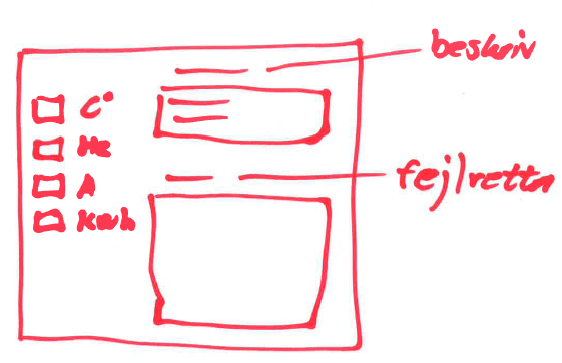 beskriv
C°
Hz
A
Kwh
fejlretta